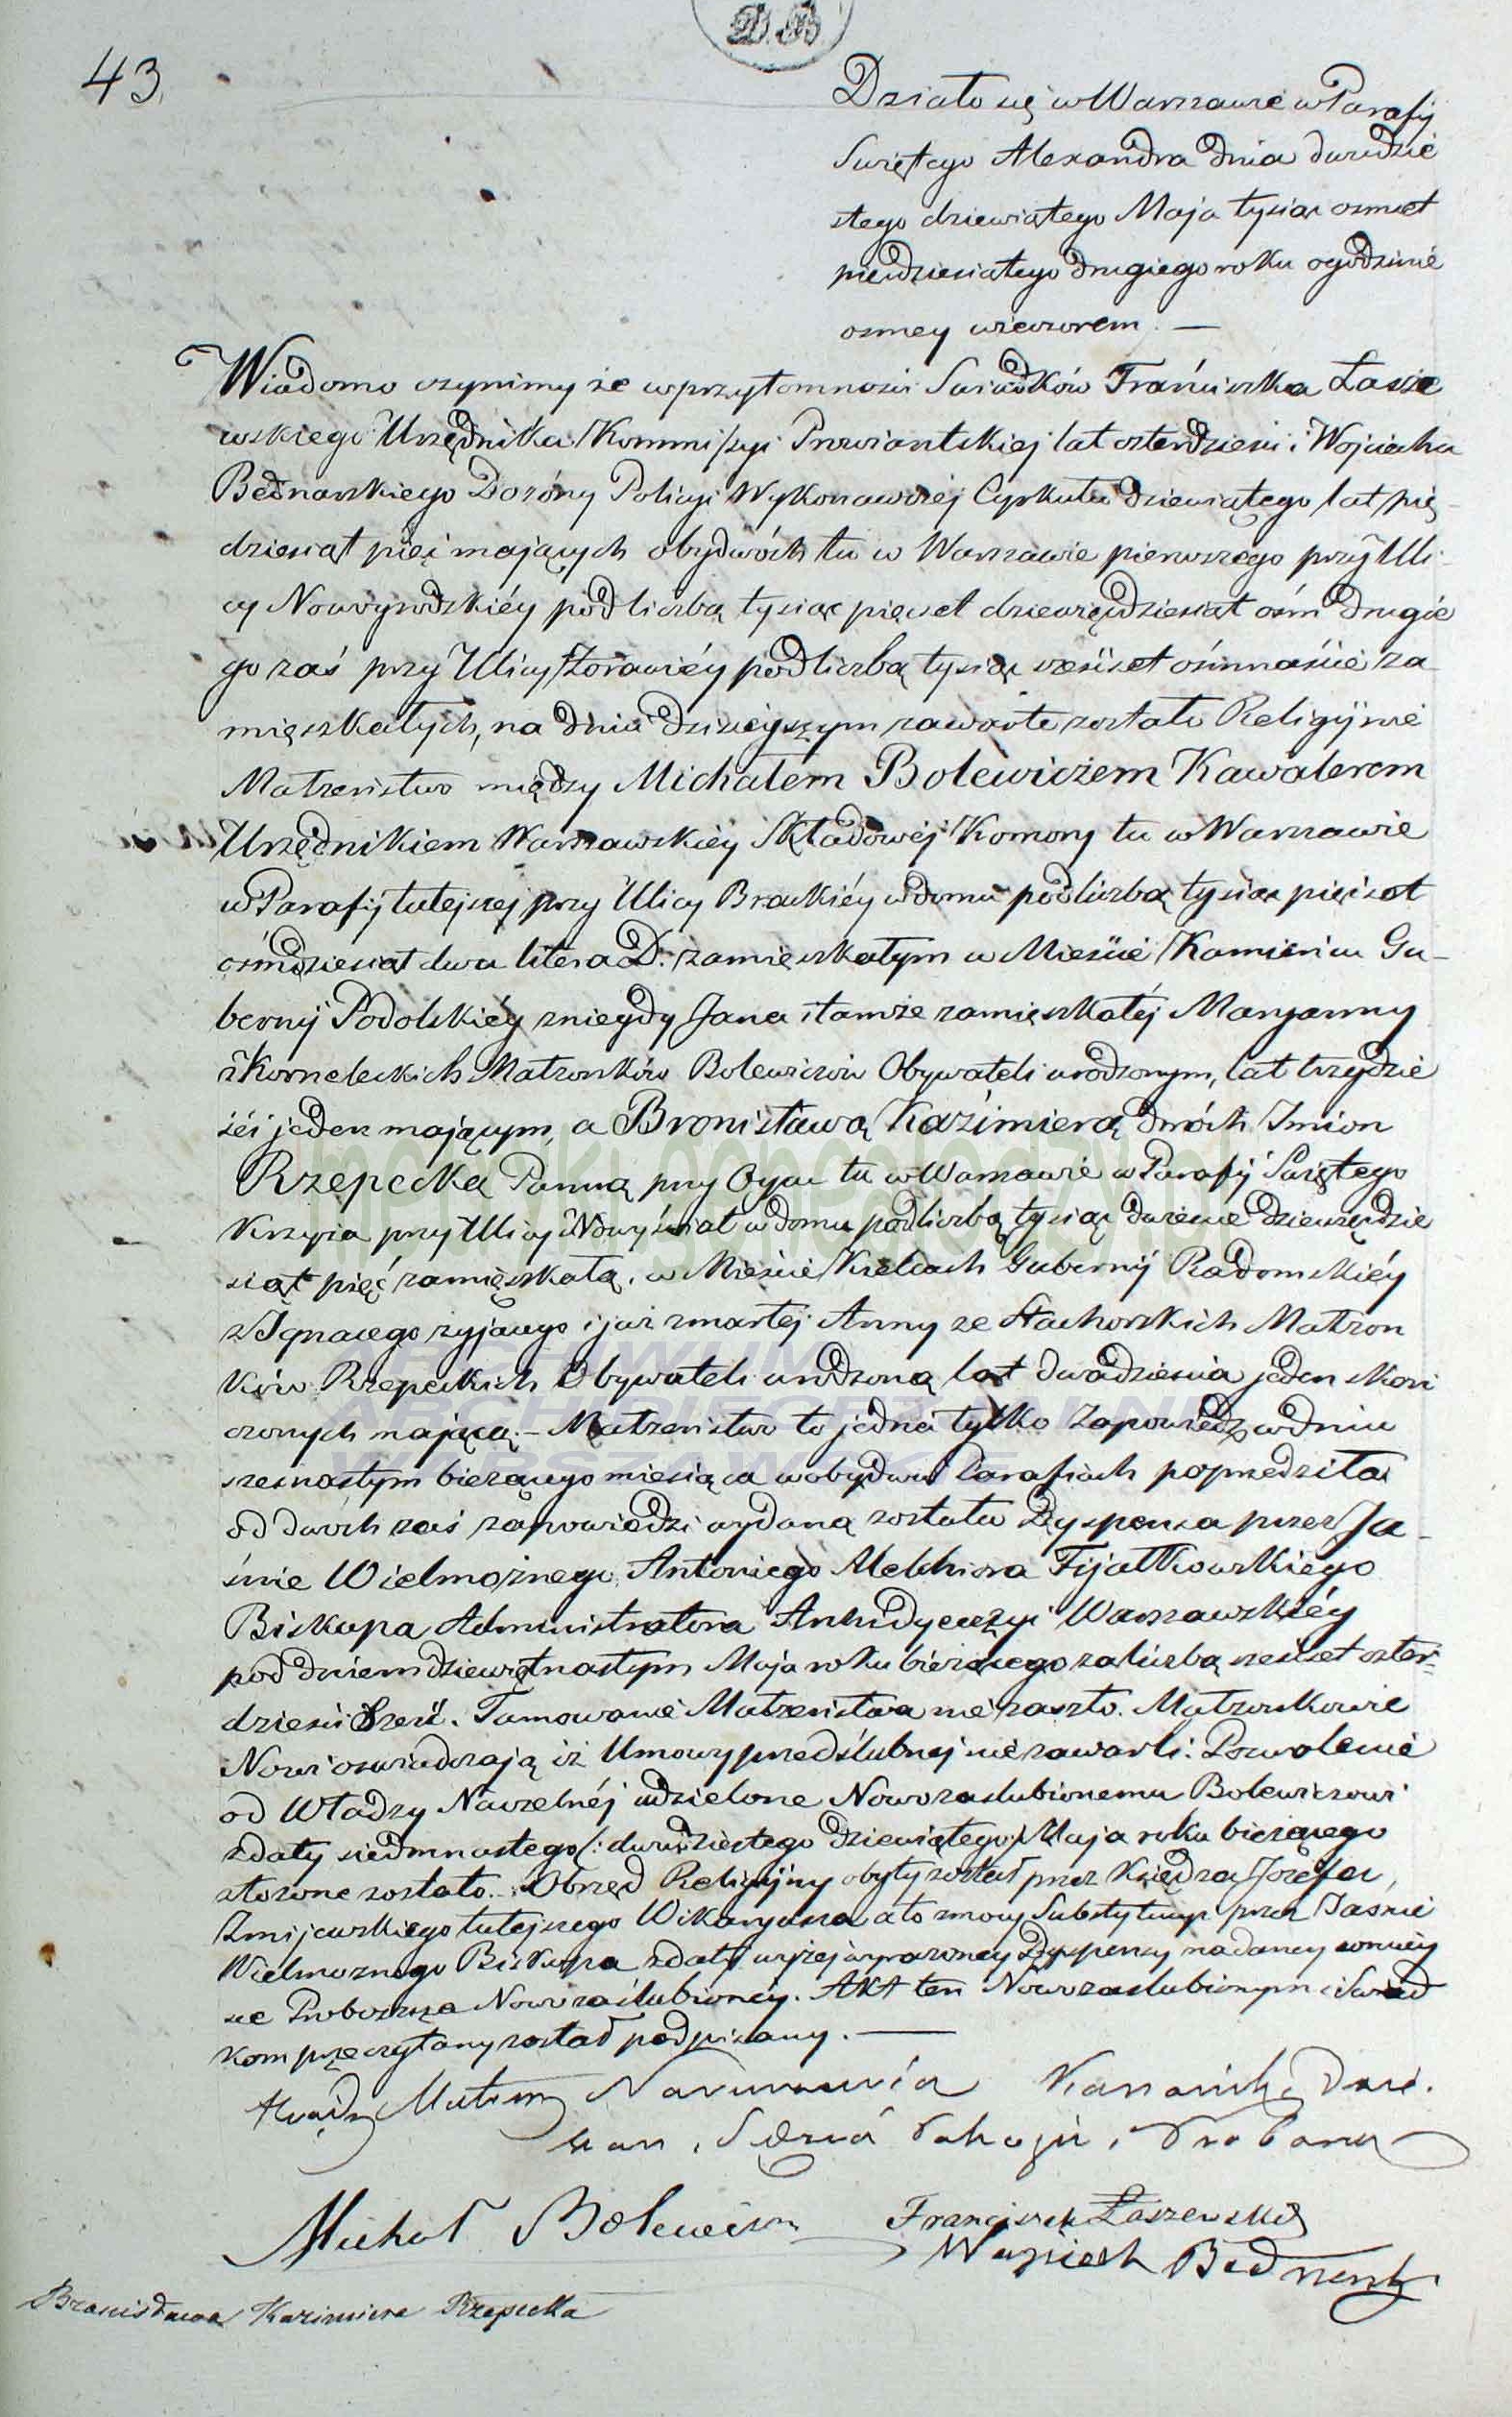 43.
D. B.
Działo się w Warszawie w Parafij
Swiętego Alexandra dnia dwudzie
stego dziewiątego Maja tysiąc osmset
piędziesiątego drugiego roku o godzinie
osmey wieczorem. —
Wiadomo czynimy że w przytomności Swiadków Franciszka Łasze
wskiego Urzędnika Kommissyi Prowiantskiej lat czterdzieści i Wojciecha
Bednarskiego Dozórcy Policyi Wykonawczej Cyrkułu dziewiątego lat pię-
dziesiąt pięć mających obydwóch tu w Warszawie pierwszego przy Uli-
cy Nowogrodzkiéy pod liczbą tysiąc pięćset dziewięćdziesiąt óśm drugie
go zaś przy Ulicy Żórawiéy pod liczbą tysiąc sześćset ośmnaście za
mięszkałych, na dniu dzisieyszym zawarte zostało Religijnie
Małżeństwo między Michałem Bolewiczem Kawalerem
Urzędnikiem Warszawskiéy Składowéj Komory tu w Warszawie
w Parafij tutejszej przy Ulicy Brackiéy w domu pod liczbą tysiąc pięćset
óśmdziesiąt dwa litera D. zamięszkałym w Mieście Kamieńcu Gu-
bernij Podolskiéy z niegdy Jana i tamże zamięszkałéj Maryanny
z Korneleckich Małżonków Bolewiczów Obywateli urodzonym, lat trzydzie
ści jeden mającym, a Bronisławą Kazimierą dwóch Imion
Rzepecką Panną przy Oycu tu w Warszawie w Parafij Swiętego
Krzyża przy Ulicy Nowyświat w domu pod liczbą tysiąc dwieście dziewięćdzie
siąt pięć zamięszkałą, w Mieście Kielcach Gubernij Radomskiéy
z Ignacego żyjącego i już zmarłej Anny ze Stachorskich Małżon
ków Rzepeckich Obywateli urodzoną lat dwadzieścia jeden skoń
czonych mającą. — Małżeństwo to jedna tylko Zapowiedź w dniu
szesnastym bieżącego miesiąca w obydwu Parafiach poprzedziła
od dwóch zaś zapowiedzi wydaną została Dyspensa przez Ja-
śnie Wielmożnego Antoniego Melchiora Fijałkowskiego
Biskupa Administratora Archidyecezyi Warszawskiéy
pod dniem dziewiętnastym Maja roku bieżącego za liczbą sześćset czter-
dzieści sześć. Tamowanie Małżeństwa nie zaszło. Małżonkowie
Nowi oswiadczają iż Umowy przedślubnej nie zawarli. Pozwolenie
od Władzy Naczelnéj udzielone Nowozaslubionemu Bolewiczowi
z daty siedmnastego /: dwudziestego dziewiątego :/ Maja roku bieżącego
złożone zostało. Obrzęd Religijny odbyty został przez Księdza Józefa
Zmijewskiego tutejszego Wikaryusza a to z mocy Substytucyi przez Jaśnie
Wielmożnego Biskupa z daty wyżej wyrażoney Dyspensy nadaney w miey
sce Proboszcza Nowozaślubioney. Akt ten Nowozaslubionym i Swiad
kom przeczytany został podpisany. —
Michał Bolewicz
Franciszek Łaszewski
Wojciech Bednarski
Bronisława Kazimiera Rzepecka
metryki.genealodzy.pl
ARCHIWUM
ARCHIDIECEZJALNE
WARSZAWSKIE